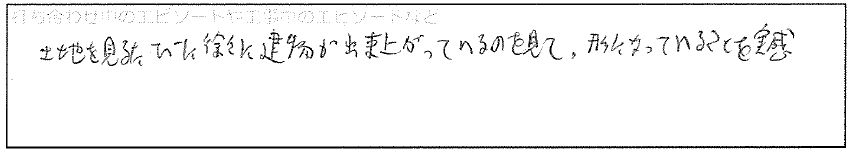 打ち合わせ中のエピソードや工事中のエピソードなど
土地を見るたびに徐々に建物が出来上がっているのを見て、形になっていることを実感